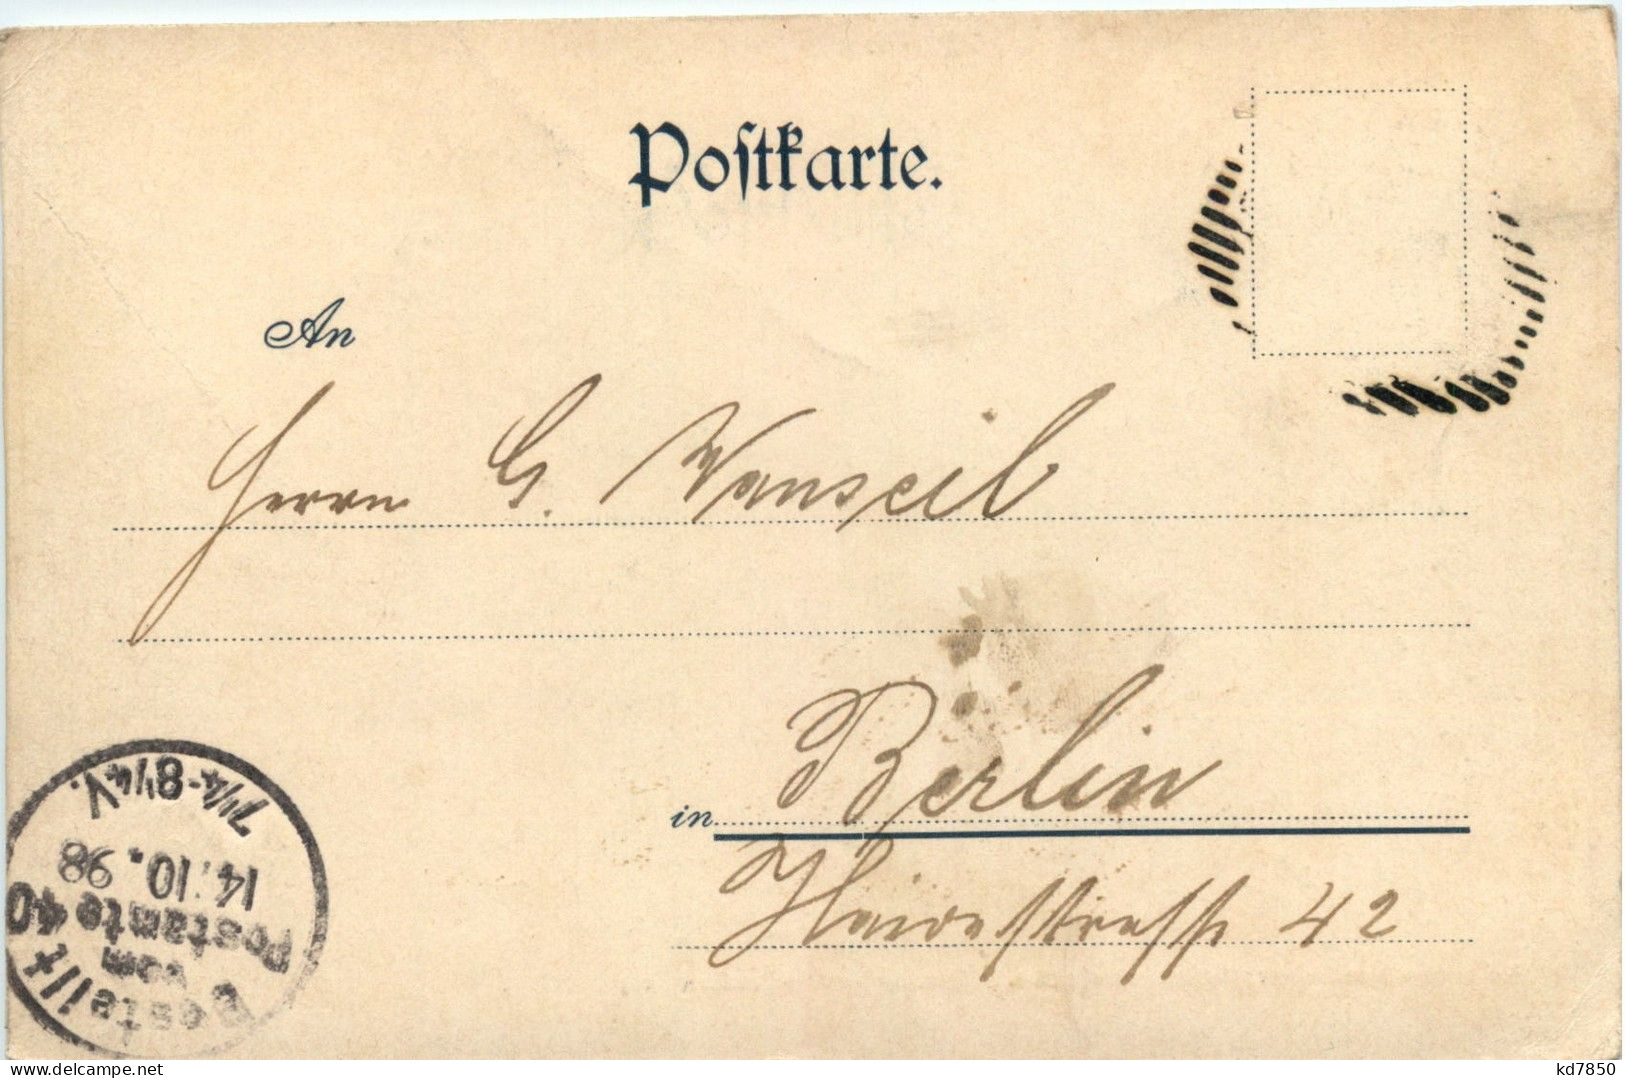 Poſtkarte.
An
Herrn G. Wanseil
in Berlin
Heidestrasse 42
Bestellt
vom
Postamte 40
14.10.98
7¼-8¼V.
www.delcampe.net
kd7850